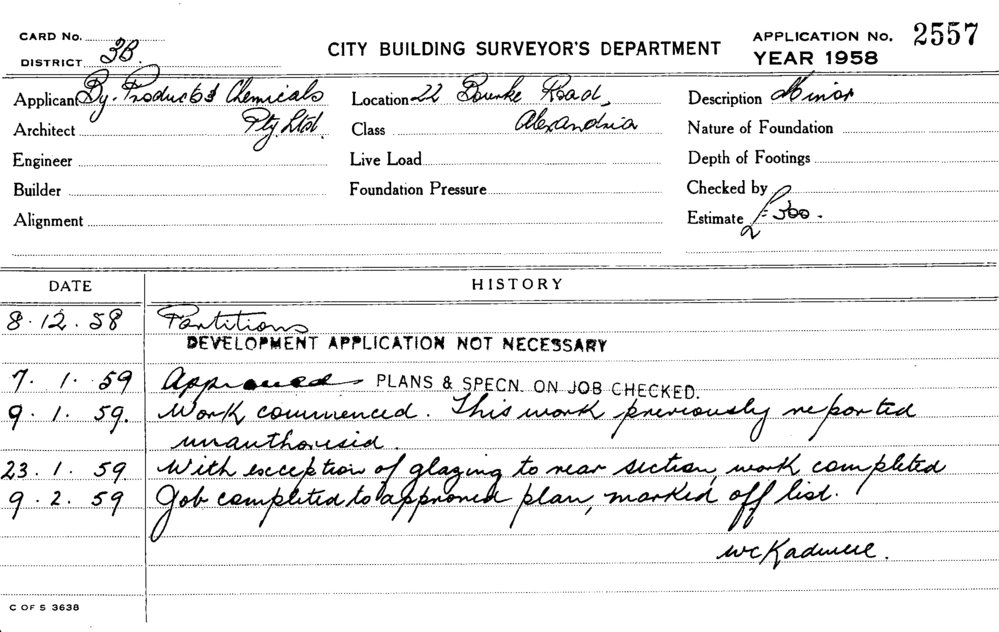 CARD No.
DISTRICT 3B.
CITY BUILDING SURVEYOR'S DEPARTMENT
APPLICATION No. 2557
YEAR 1958
Applicant By-Products & Chemicals
Pty. Ltd.
Architect
Engineer
Builder
Alignment
Location 22 Bourke Road,
Alexandria
Class
Live Load
Foundation Pressure
Description Minor
Nature of Foundation
Depth of Footings
Checked by
Estimate £300.
DATE HISTORY
8.12.58 Partitions
DEVELOPMENT APPLICATION NOT NECESSARY
7.1.59 Approved PLANS & SPECN. ON JOB CHECKED.
9.1.59. Work commenced. This work previously reported
unauthorisid.
23.1.59 With exception of glazing to rear section, work completed
9.2.59 Job completed to approved plan, marked off list.
C OF S 3638